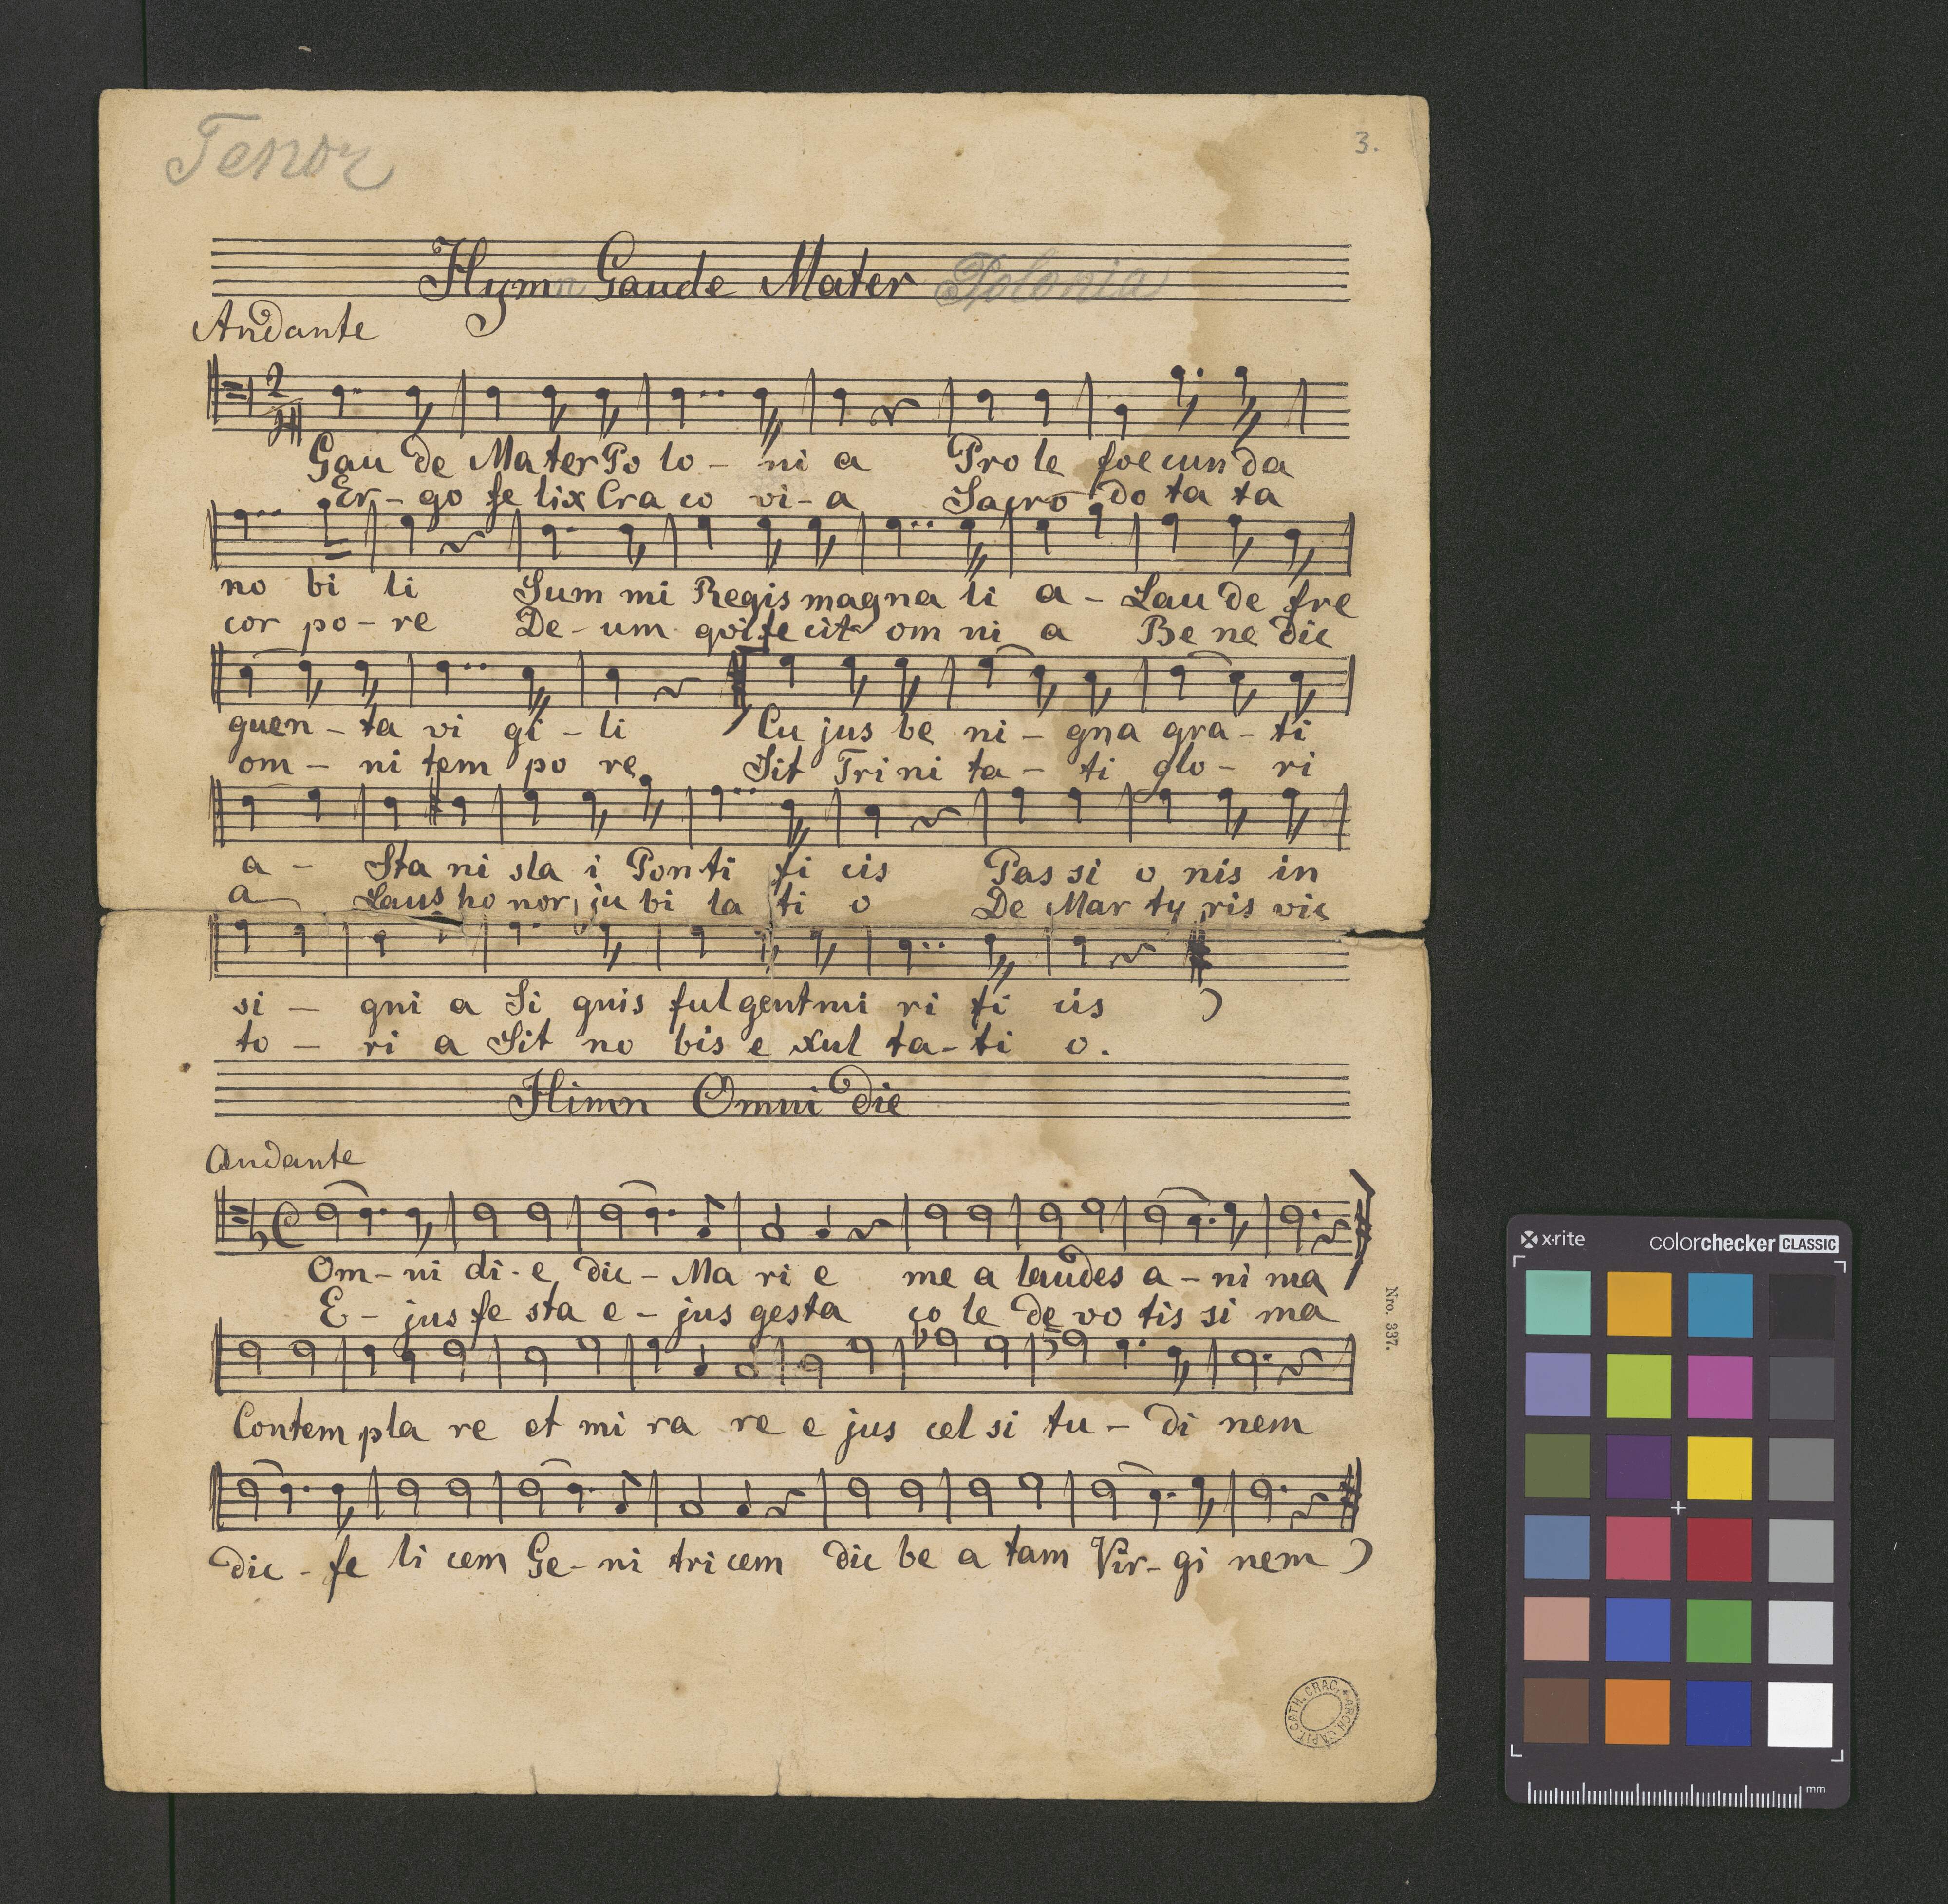 Tenor
3.
Hymn Gaude Mater Polonia
Andante
Gau de Mater Po lo - ni a Pro le foe cun da
Er - go fe lix Cra co vi - a Sacro do ta ta
no bi li Sum mi Regis magna li a - Lau de fre
cor po - re De - um qui fe cit om ni a Be ne dic
quen - ta vi gi - li Cu jus be ni - gna gra - ti
om - ni tem po re Sit Tri ni ta - ti glo - ri
a - Sta ni sla i Pon ti fi cis Pas si o nis in
a Laus ho nor, ju bi la ti o De Mar ty ris vic
si - gni a Si gnis ful gent mi ri fi cis
to - ri a Sit no bis e xul ta - ti o.
Himn Omni die
Andante
Om - ni di - e dic - Ma ri e me a laudes a - ni ma
E - jus fe sta e - jus gesta co le de vo tis si ma
Contem pla re et mi ra re e jus cel si tu - di nem
dic - fe li cem Ge - ni tri cem dic be a tam Vir - gi nem
Nro. 337.
ARCH. CAPIT. CATH. CRAC.
x-rite
colorchecker CLASSIC
mm